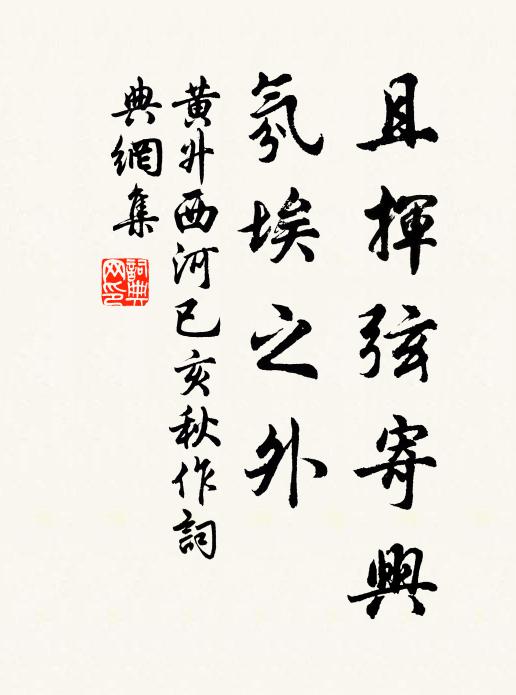 且揮弦寄興
氛埃之外
黃升西河己亥秋作詞
典網集
詞典
网印